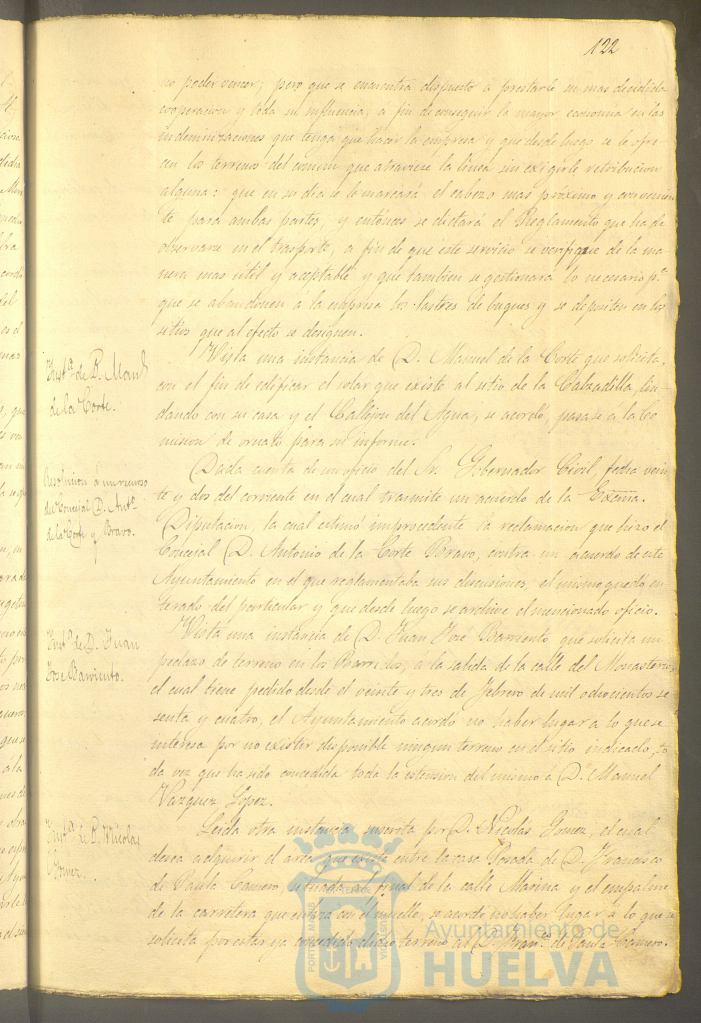 122
no poder vencer; pero que se encuentra dispuesto a prestarle su mas decidida
cooperacion y toda su influencia, a fin de conseguir la mayor economia en las
indemnizaciones que tenga que hacer la empresa y que desde luego se le ofre-
cen los terrenos del comun que atraviese la linea sin exigirle retribucion
alguna: que en su dia se le marcará el cabezo mas próximo y convenien-
te para ambas partes, y entónces se dictará el Reglamento que ha de
observarse en el trasporte, a fin de que este servicio se verifique de la ma-
nera mas útil y aceptable y que tambien se gestionará lo necesario pª
que se abandonen a la empresa los lastres de buques y se depositen en los
sitios que al efecto se designen.
Instª de D. Manl
de la Corte.
Vista una instancia de D. Manuel de la Corte que solicita,
con el fin de edificar el solar que existe al sitio de la Calzadilla, lin-
dando con su casa y el Callejon del Agua, se acordó, pasase a la Co-
mision de ornato para su informe.
Resolucion á un recurso
del Concejal D. Antº
de la Corte y Bravo.
Dada cuenta de un oficio del Sr. Gobernador Civil, fecha vein-
te y dos del corriente en el cual trasmite un acuerdo de la Excma.
Diputacion, la cual estimó improcedente la reclamacion que hizo el
Concejal D. Antonio de la Corte Bravo, contra un acuerdo de este
Ayuntamiento en el que reglamentaba sus discusiones, el mismo quedó en-
terado del particular y que desde luego se archive el mencionado oficio.
Instª de D. Juan
José Barriento.
Vista una instancia de D. Juan José Barriento, que solicita un
pedazo de terreno en los Barriles, á la salida de la calle del Monasterio,
el cual tiene pedido desde el veinte y tres de Febrero de mil ochocientos se-
senta y cuatro, el Ayuntamiento acordó no haber lugar a lo que se
interesa por no existir disponible ningun terreno en el sitio indicado, to-
da vez que ha sido concedida toda la estension del mismo á D. Manuel
Vazquez Lopez.
Instª de D. Nicolas
Gomez.
Leida otra instancia suscrita por D. Nicolas Gomez, el cual
desea adquirir el area que existe entre la casa Posada de D. Francisco
de Paula Camero, situada al final de la calle Marina y el empalme
de la carretera que enlaza con el muelle, se acordó no haber lugar á lo que
solicita por estar ya concedido dicho terreno al D. Franº de Paula Camero.
PORTUS MARIS
ET TERRAE
CUSTODIA
Ayuntamiento de
HUELVA